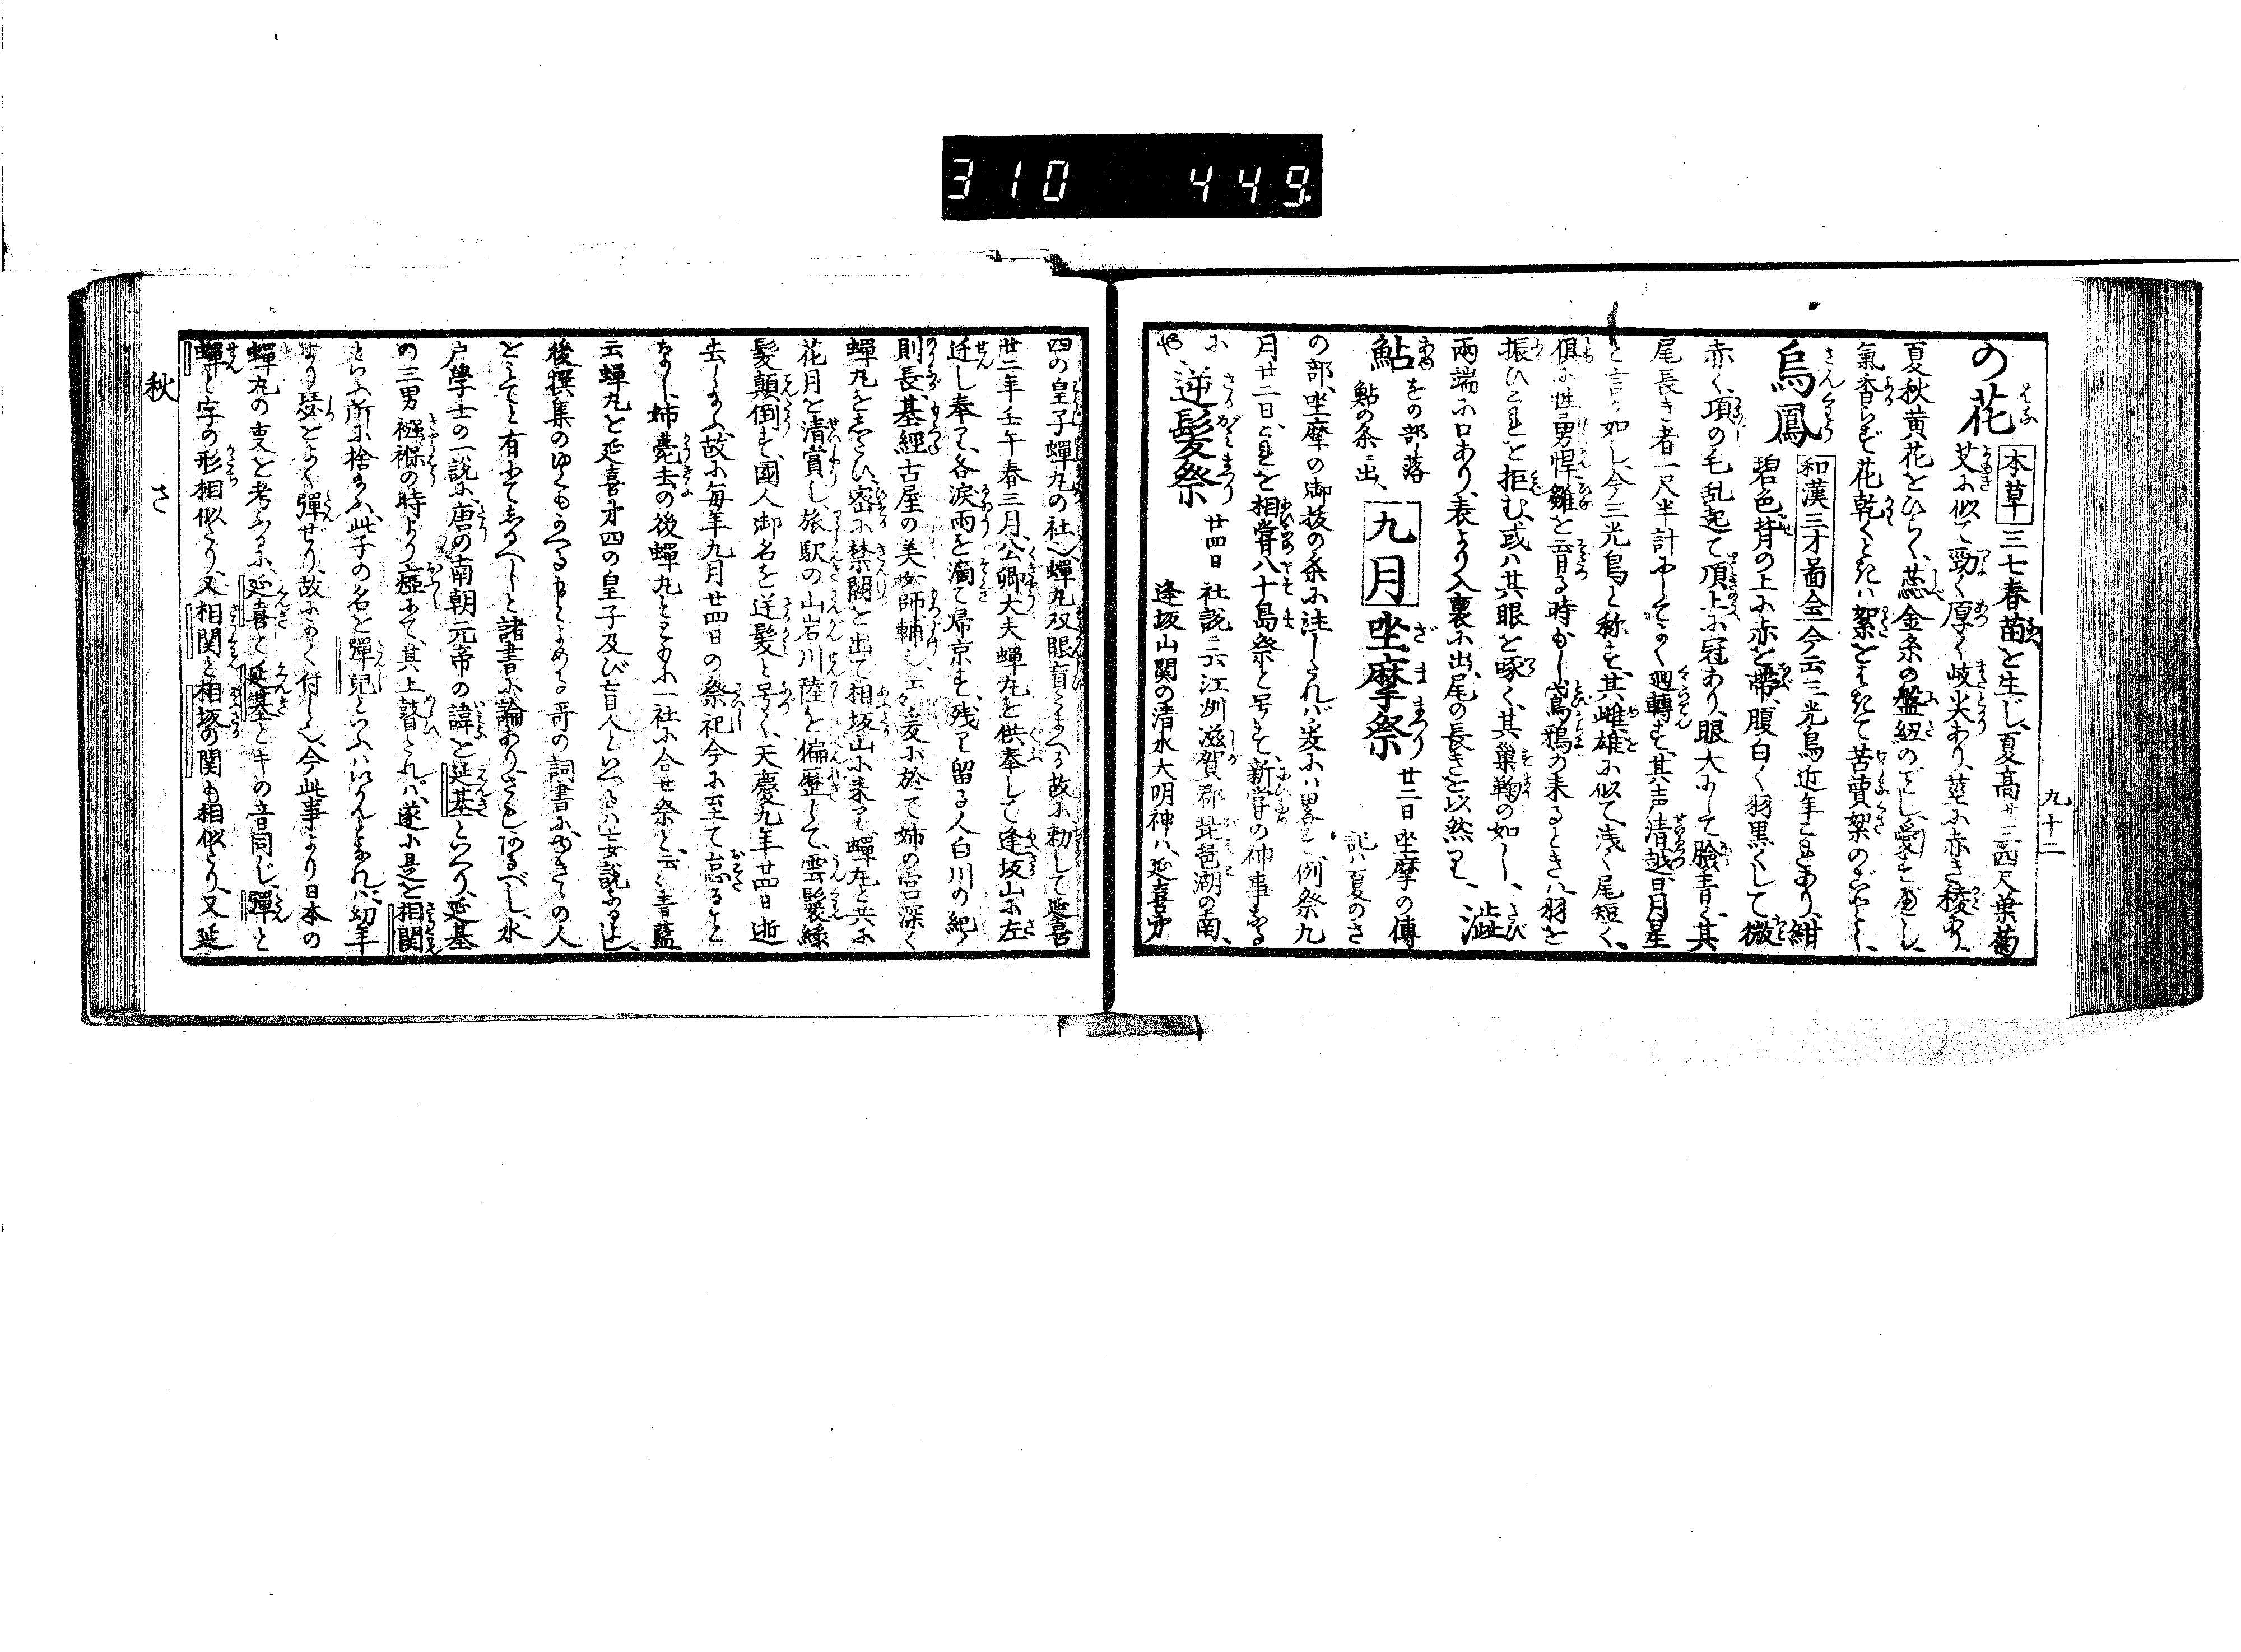 310 449.
九十二
の花 本草 三七春苗を生じ、夏高サ三四尺、葉菊
艾に似て勁く厚く岐尖あり、茎に赤き稜あり、
夏秋黄花をひらく、蕊金糸の盤紐のごとし、愛すべし、
氣香らず花乾くときハ絮を
烏鳳 和漢三才圖会 今云三光鳥近年こもあり、紺
碧色背の上に赤を帯、腹白く羽黒くして微
赤く、項の毛乱起て頂上に冠あり、眼大にして臉青く、其
尾長き者一尺半計にしてよく廻轉す、其声清越、日月星
と言が如し、今三光鳥と称す、其雌雄に似て、浅く尾短く、
倶に性勇悍雛を育る時もし鳶鴉の来るときハ羽を
振ひこれを拒む、或ハ其眼を啄く、其巣鞠の如し、
両端に口あり、表より入裏に出、尾の長きを以然り、 澁
鮎 をの部落鮎の条ニ出、 九月 坐摩祭 廿二日 坐摩の傳記ハ夏のさ
の部、坐摩の御抜の条に注したれバ爰にハ畧す、例祭九
月廿二日、これを相嘗八十島祭と号す、新嘗の神事なる
に 逆髪祭 廿四日 社説ニ云江州滋賀郡琵琶湖の南、
逢坂山関の清水大明神ハ、延喜第
四の皇子蟬丸の社、蟬丸双眼盲たまへる故に勅して延喜
廿二年壬午春三月、公卿大夫蟬丸を供奉して逢坂山に左
迁し奉り、各涙雨を滴て帰京す、残り留る人白川の紀ノ
則長、基經古屋の美女師輔、爰に於て姉の宮深く
蟬丸をしたひ、密に禁闕を出て相坂山に来り、蟬丸と共に
花月を清賞し、旅駅の山岩川陸を偏歴して、雲鬟緑
髪顛倒す、國人御名を逆髪と号く、天慶九年廿四日逝
去したまふ、故に毎年九月廿四日の祭祀今に至て忘ると
なし、姉薨去の後蟬丸とともに一社に合せ祭と云々、青藍
云蟬丸を延喜第四の皇子及び盲人といへるハ妄説なる也、
後撰集のゆくもかへるもとよめる哥の詞書に、ゆきゝの人
をみてと有にてしるべしと諸書に論あり、さもあるべし、水
戸學士の一説に、唐の南朝元帝の諱を延基といへり、延基
の三男襁褓の時より瘂にて、其上瞽たれバ、遂に是を相関
といふ所に捨たまふ、此子の名を彈兒といふハいかんとなれバ、幼年
より琴をよく彈ぜり、故にかく付しと、今此事より日本の
蟬丸の叓を考ふるに、延喜と延基とキの音同じ、彈と
蟬と字の形相似たり、又相関と相坂の関も相似たり、又延
秋
さ